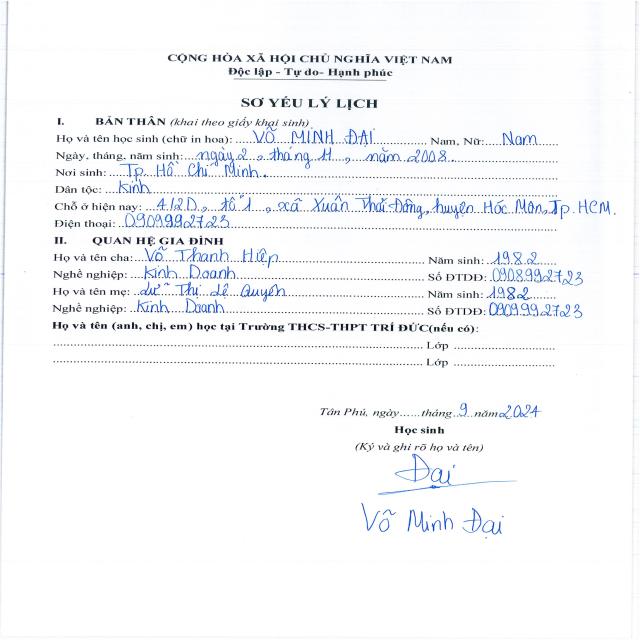 CỘNG HÒA XÃ HỘI CHỦ NGHĨA VIỆT NAM
Độc lập - Tự do- Hạnh phúc
SƠ YẾU LÝ LỊCH
I. BẢN THÂN (khai theo giấy khai sinh)
Họ và tên học sinh (chữ in hoa): VÕ MINH ĐẠI Nam, Nữ: Nam
Ngày, tháng, năm sinh: ngày 2, tháng 11, năm 2008
Nơi sinh: Tp. Hồ Chí Minh.
Dân tộc: Kinh
Chỗ ở hiện nay: 412D, tổ 1, xã Xuân Thới Đông, huyện Hóc Môn, Tp. HCM.
Điện thoại: 0909992723
II. QUAN HỆ GIA ĐÌNH
Họ và tên cha: Võ Thanh Hiệp Năm sinh: 1982
Nghề nghiệp: Kinh Doanh Số ĐTDĐ: 0908992723
Họ và tên mẹ: Thị Lệ Quyên Năm sinh: 1982
Nghề nghiệp: Kinh Doanh Số ĐTDĐ: 0909992723
Họ và tên (anh, chị, em) học tại Trường THCS-THPT TRÍ ĐỨC(nếu có):
Lớp
Lớp
Tân Phú, ngày......tháng 9 năm 2024
Học sinh
(Ký và ghi rõ họ và tên)
Đại
Võ Minh Đại